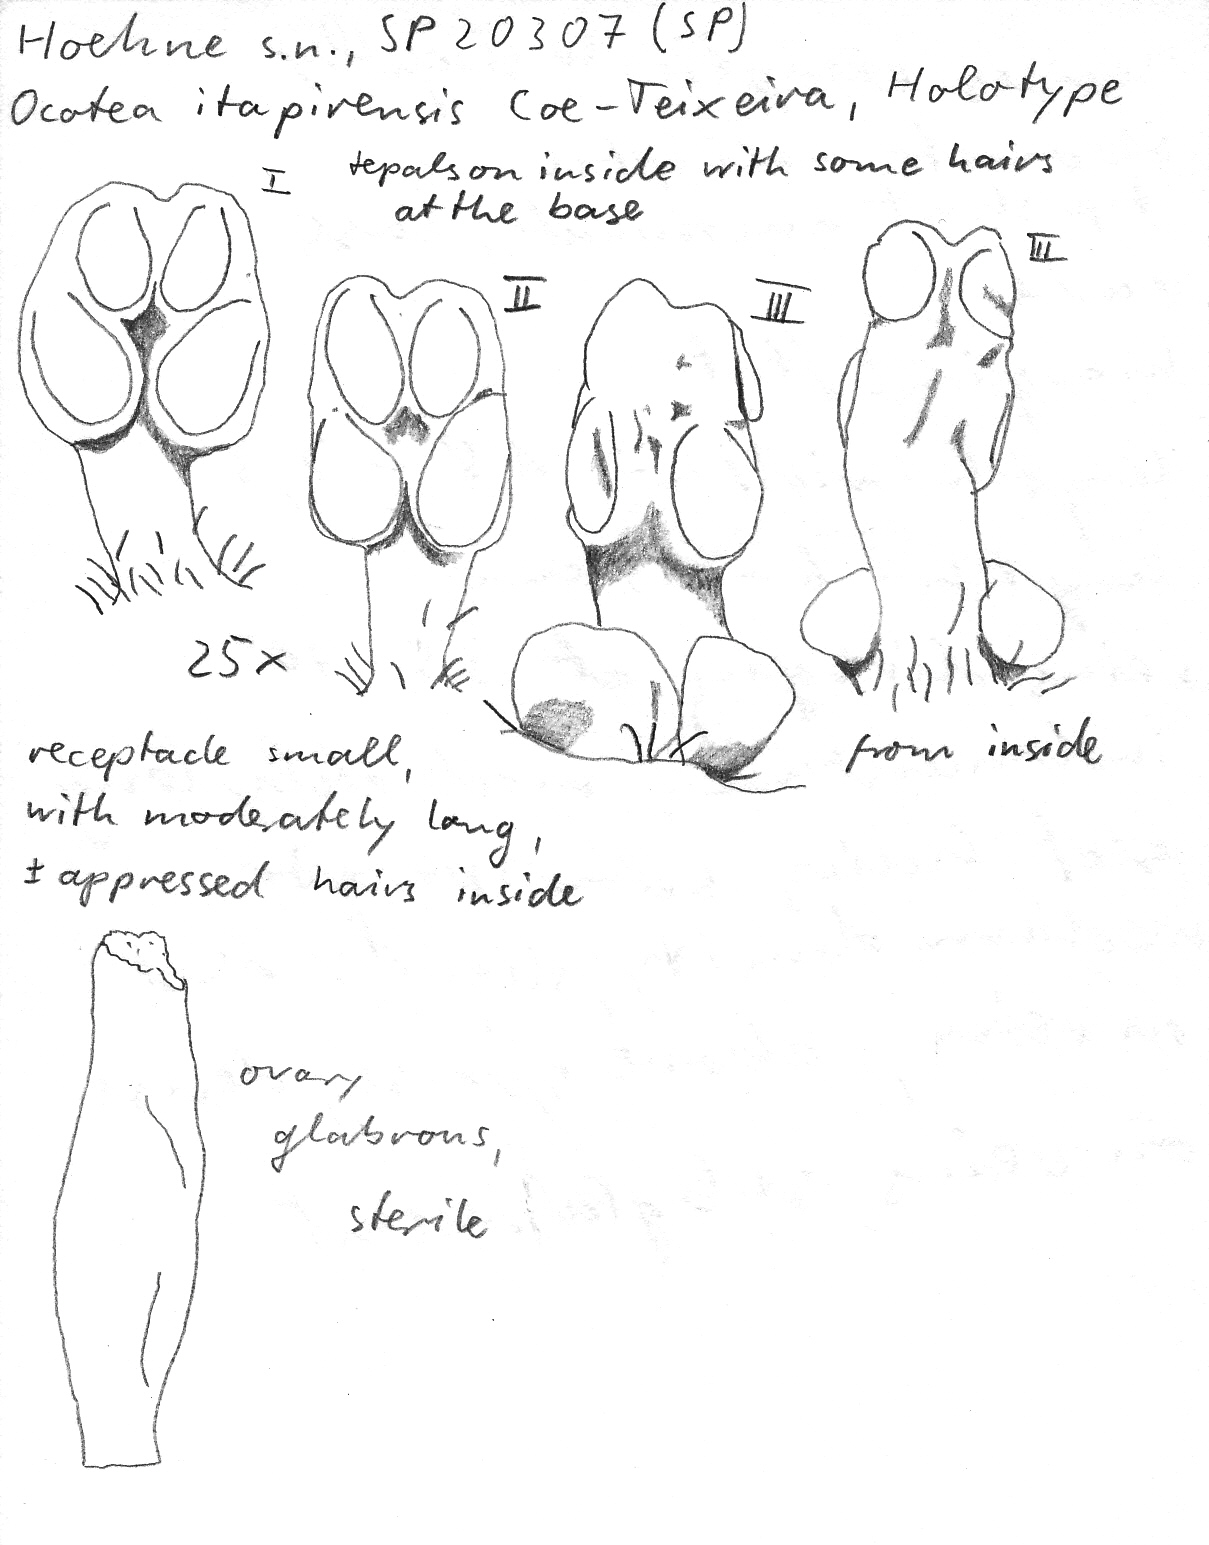 Hoehne s.n., SP 20307 (SP)
Ocotea itapirensis Coe-Teixeira, Holotype
I
tepals on inside with some hairs
at the base
II
III
III
25x
from inside
receptacle small,
with moderately long,
± appressed hairs inside
ovary
glabrous,
sterile